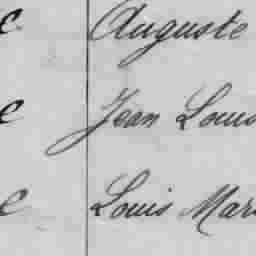 c Auguste
e Jean Louis
e Louis Mar